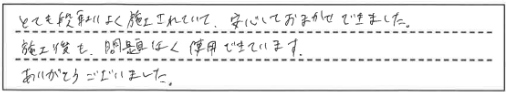 とても段取りよく施工されていて、安心しておまかせできました。
施工後も、問題なく使用できています。
ありがとうございました。